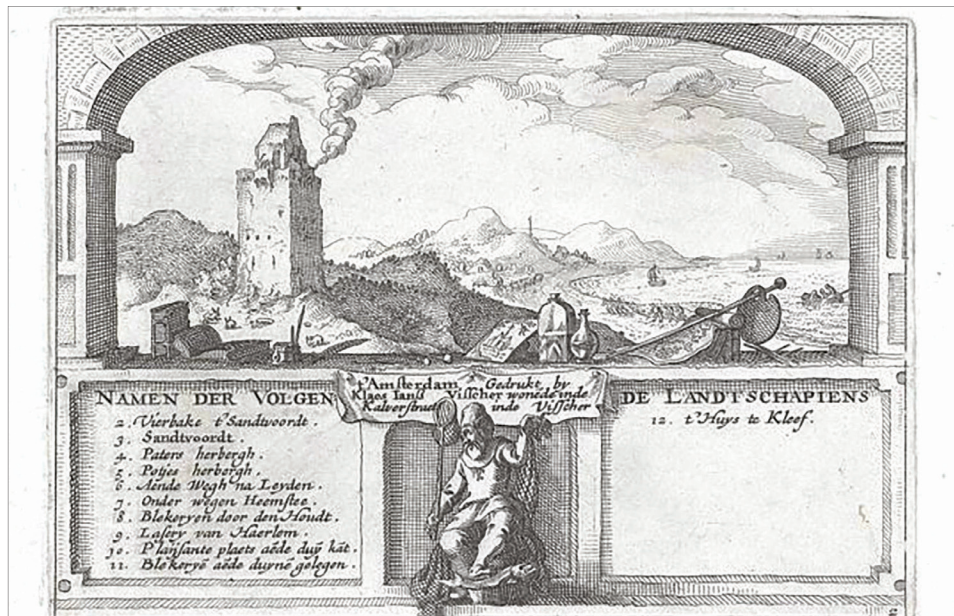 t'Amsterdam Gedrukt by
Klaes Ianß Visscher wonede inde
Kalverstraet inde Visscher
NAMEN DER VOLGEN
DE LANDTSCHAPIENS
2. Vierbake t'Sandtvoordt.
3. Sandtvoordt.
4. Paters herbergh.
5. Potjes herbergh.
6. Aende Wegh na Leyden.
7. Onder wegen Heemstee.
8. Blekeryen door den Houdt.
9. Lasery van Haerlem.
10. Plaisante plaets aēde duÿ kāt.
11. Blekeryē aēde duynē gelegen.
12. t'Huys te Kleef.
2